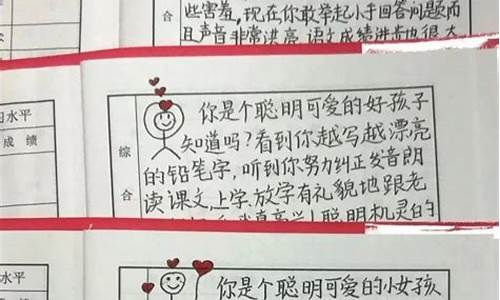 些害羞,现在你敢举起小手回答问题而
合
且声音非常洪亮,语文成绩进步也很大
水平
成绩
综
合
你是个聪明可爱的好孩子
知道吗?看到你越写越漂亮
的铅笔字,听到你努力纠正发音朗
读课文,上学、放学有礼貌地跟老
聪明机灵的
水平
你是个聪明可爱的小女孩